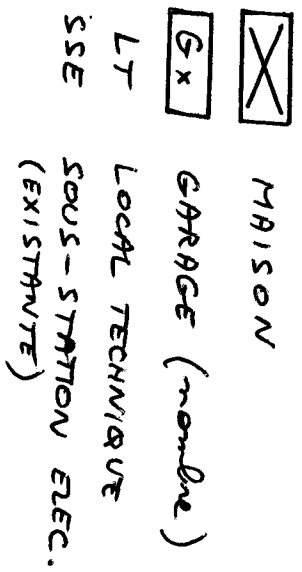 MAISON
G x GARAGE (nombre)
LT LOCAL TECHNIQUE
SSE SOUS-STATION ELEC.
(EXISTANTE)